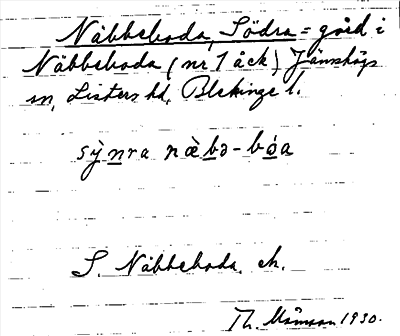 Näbbeboda, Södra = gård i
Näbbeboda (nr 1 åck) Jämshögs
sn, Listers hd, Blekinge l.
sỳnra næ̀bə-bóa
S. Näbbeboda, ek.
Th. Månsson 1930.